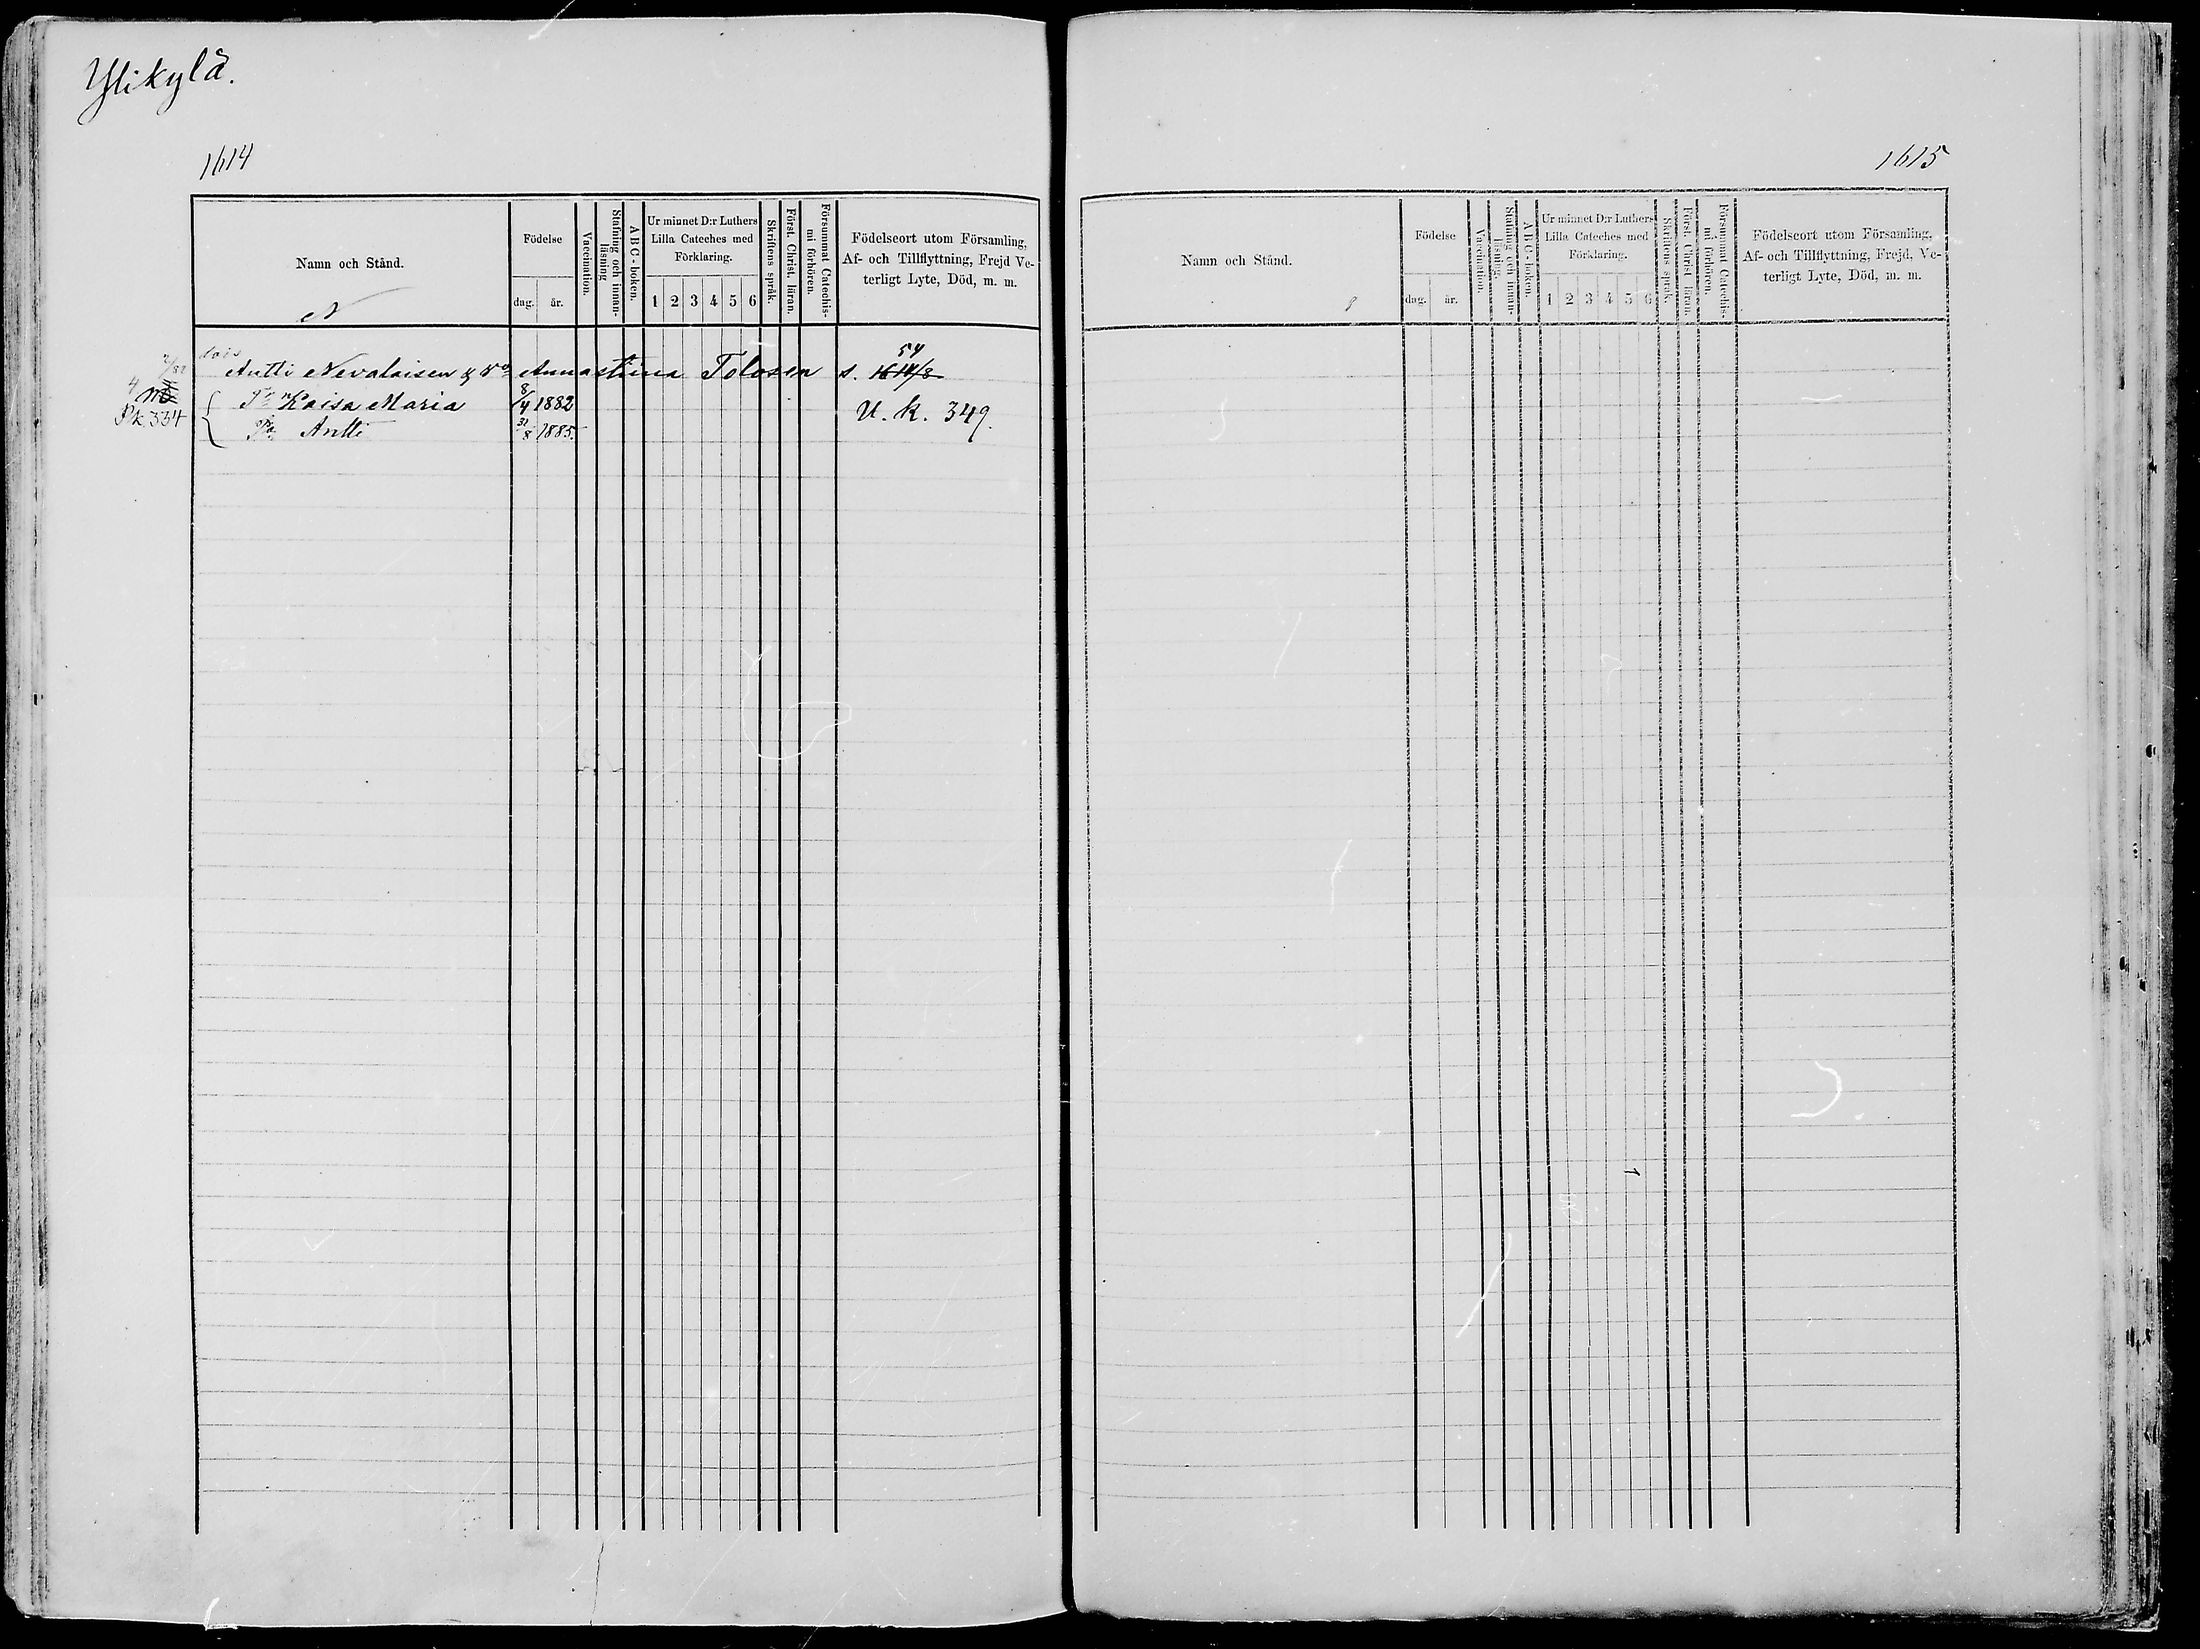 Ylikylä.
1614
Namn och Stånd.
Födelse
dag. år.
Vaccination.
Stafning och innan-
läsning
A B C - boken.
Ur minnet D:r Luthers
Lilla Cateches med
Förklaring.
1 2 3 4 5 6
Skriftens språk.
Först. Christ. läran.
Försummat Catechis-
mi förhören.
Födelseort utom Församling,
Af- och Tillflyttning, Frejd Ve-
terligt Lyte, Död, m. m.
N
54
Antti Nevalaisen & Anna Stiina Tolosen s. 1614/8
Kaisa Maria 8/4 1882 U. k. 349.
Pk. 334
Antti 31/8 1885.
1615
Namn och Stånd.
Födelse
dag. år.
Vaccination.
Stafning och innan-
läsning
A B C - boken.
Ur minnet D:r Luthers
Lilla Cateches med
Förklaring.
1 2 3 4 5 6
Skriftens språk.
Först. Christ. läran.
Försummat Catechis-
mi förhören.
Födelseort utom Församling,
Af- och Tillflyttning, Frejd, Ve-
terligt Lyte, Död, m. m.